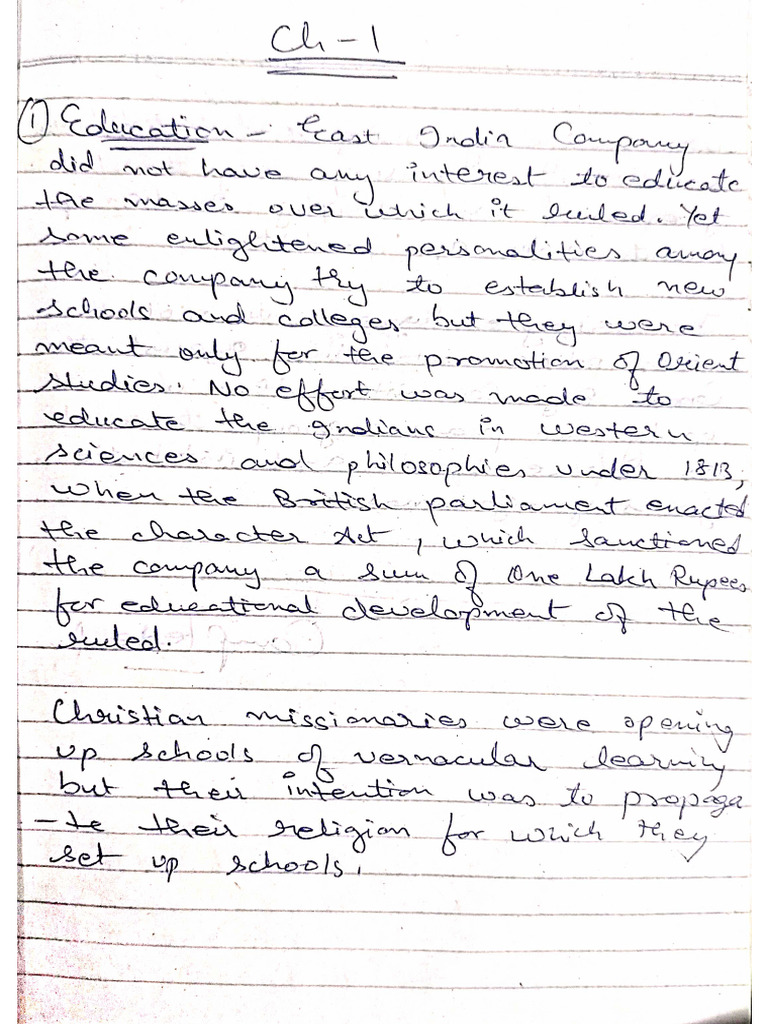 Ch-1
① Education - East India Company
did not have any interest to educate
the masses over which it ruled. Yet
some enlightened personalities among
the company try to establish new
schools and colleges but they were
meant only for the promotion of Orient
studies. No effort was made to
educate the Indians in western
sciences and philosophies under 1813,
when the British parliament enacted
the character Act, which sanctioned
the company a sum of One Lakh Rupees
for educational development of the
ruled.
Christian missionaries were opening
up schools of vernacular learning
but their intention was to propaga
-te their religion for which they
set up schools.